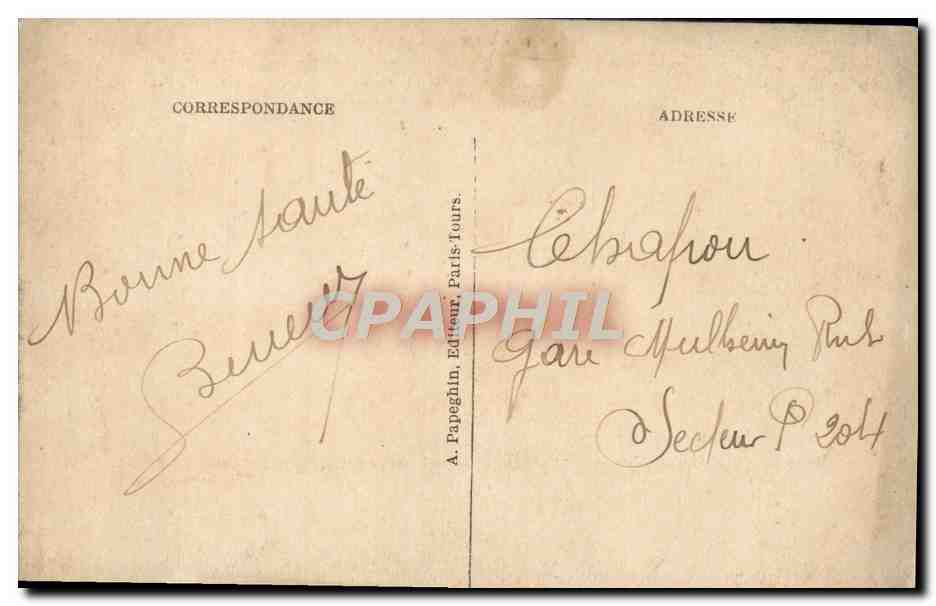 CORRESPONDANCE
Bonne santé
A. Papeghin, Editeur, Paris-Tours.
ADRESSE
Chapou
Gare Mulheim Ruhr
Secteur P 204
CPAPHIL